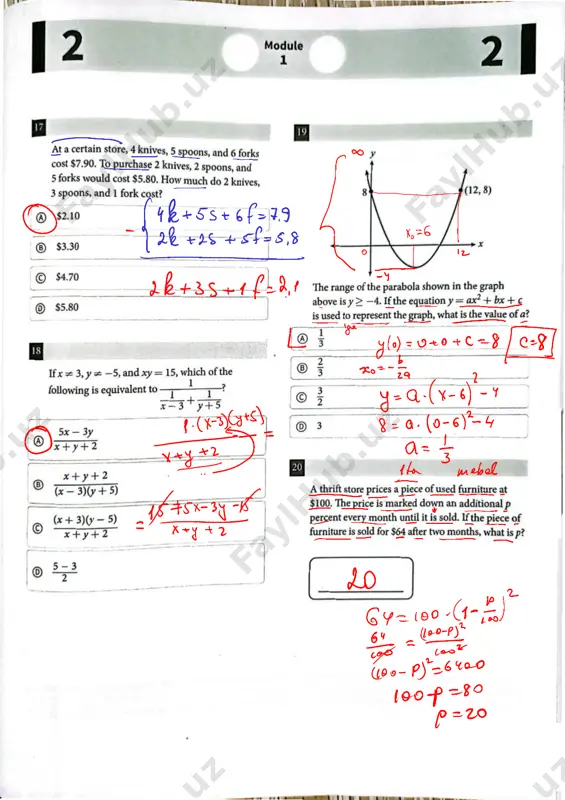 2
Module
1
2
17
At a certain store, 4 knives, 5 spoons, and 6 forks
cost $7.90. To purchase 2 knives, 2 spoons, and
5 forks would cost $5.80. How much do 2 knives,
3 spoons, and 1 fork cost?
A $2.10
B $3.30
C $4.70
D $5.80
4k+5s+6f=7.9
- 2k+2s+5f=5,8
2k+3s+1f=2,1
18
If x ≠ 3, y ≠ -5, and xy = 15, which of the
following is equivalent to 1/(1/(x-3) + 1/(y+5))?
A (5x - 3y)/(x + y + 2)
B (x + y + 2)/((x - 3)(y + 5))
C ((x + 3)(y - 5))/(x + y + 2)
D (5 - 3)/2
(1·(x-3)(y+5))/(x+y+2) =
= (15+5x-3y-15)/(x+y+2)
19
∞
y
8
(12, 8)
x₀=6
x
0
12
-4
The range of the parabola shown in the graph
above is y ≥ -4. If the equation y = ax² + bx + c
is used to represent the graph, what is the value of a?
A 1/3
B 2/3
C 3/2
D 3
y(0)=0+0+c=8
c=8
x₀=-b/2a
y=a·(x-6)²-4
8=a·(0-6)²-4
a=1/3
20
mebel
A thrift store prices a piece of used furniture at
$100. The price is marked down an additional p
percent every month until it is sold. If the piece of
furniture is sold for $64 after two months, what is p?
20
64=100·(1-p/100)²
64/100=(100-p)²/100²
(100-p)²=6400
100-p=80
p=20
FaylHub.uz
FaylHub.uz
FaylHub.uz
FaylHub.uz